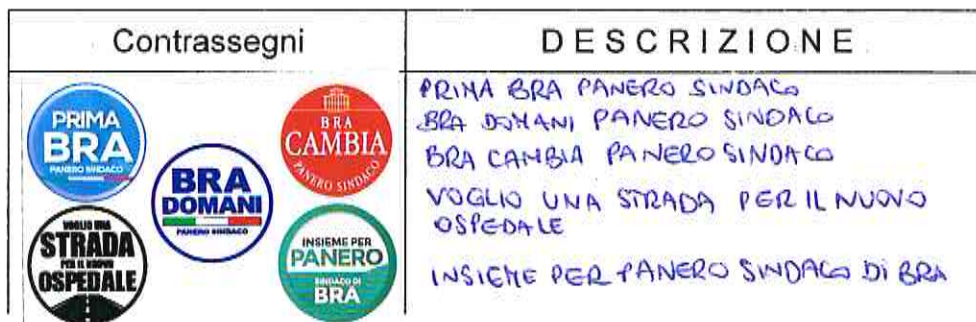 Contrassegni
DESCRIZIONE
PRIMA
BRA
PANERO SINDACO
BRA
CAMBIA
PANERO SINDACO
BRA
DOMANI
PANERO SINDACO
VOGLIO UNA
STRADA
PER IL NUOVO
OSPEDALE
INSIEME PER
PANERO
SINDACO DI
BRA
PRIMA BRA PANERO SINDACO
BRA DOMANI PANERO SINDACO
BRA CAMBIA PANERO SINDACO
VOGLIO UNA STRADA PER IL NUOVO
OSPEDALE
INSIEME PER PANERO SINDACO DI BRA